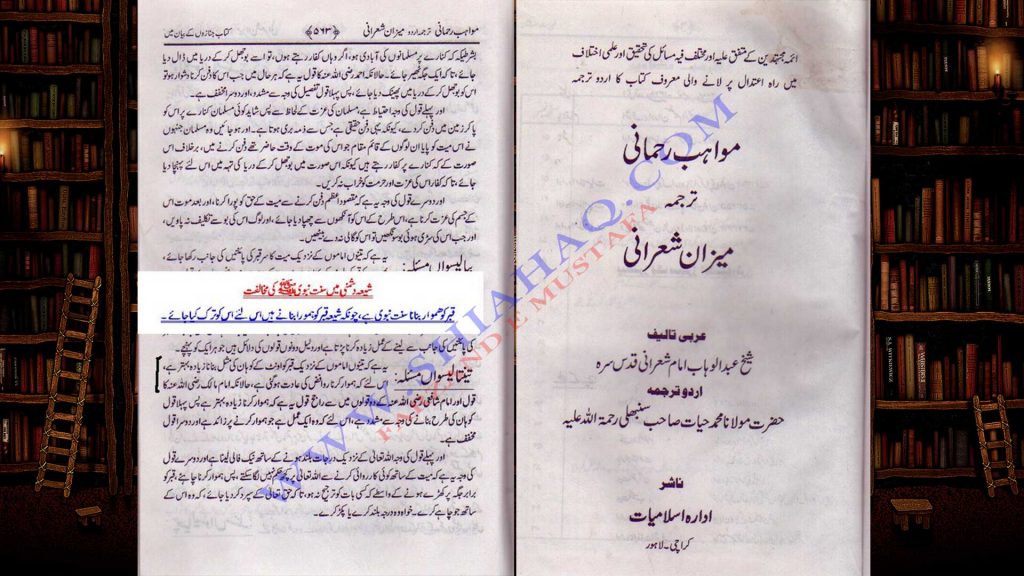 ائمہ مجتہدین کے متفق علیہ اور مختلف فیہ مسائل کی تحقیق اور علمی اختلاف
میں راہ اعتدال پر لانے والی معروف کتاب کا اردو ترجمہ
مواہب رحمانی
ترجمہ
میزان شعرانی
عربی تالیف
شیخ عبدالوہاب امام شعرانی قدس سرہ
اردو ترجمہ
حضرت مولانا محمد حیات صاحب سنبھلی رحمۃ اللہ علیہ
ناشر
ادارہ اسلامیات
کراچی۔لاہور
مواہب رحمانی ترجمہ اردو میزان شعرانی ﴿۵۶۳﴾ کتاب جنازوں کے بیان میں
بشرطیکہ کنارے پر مسلمانوں کی آبادی ہو، اگر وہاں کفار رہتے ہوں، تو اسے بوجھل کر کے دریا میں ڈال دیا
جائے، تاکہ ایک جگہ ٹھہر جائے۔ حالانکہ احمد رضی اللہ عنہ کا قول یہ ہے کہ ہر حال میں جب کہ اس کا دفن کرنا دشوار ہو تو
اس کو بوجھل کر کے دریا میں پھینک دیا جائے، پس پہلا قول تفصیل کی وجہ سے مشدد، اور دوسرا مخفف ہے۔
اور پہلے قول کی وجہ احتیاط ہے مسلمان کی عزت کے لحاظ سے پس شاید کوئی مسلمان کنارے پر
پا کر زمین میں دفن کر دے، کیونکہ یہی دفن حقیقی ہے جس سے ذمہ بری ہوتا ہے۔ اور ہو جائیں وہ مسلمان جنہوں
نے اس میت کو پایا ان لوگوں کے قائم مقام جو اس کی موت کے وقت حاضر تھے دفن کرنے میں، برخلاف اس
صورت کے کہ کنارے پر کفار رہتے ہیں کیونکہ اس صورت میں بوجھل کر کے دریا کی تہہ میں اس لئے پہنچایا
جائے، تاکہ کفار اس کی عزت اور حرمت کو خراب نہ کریں۔
اور دوسرے قول کی وجہ یہ ہے کہ مقصود اعظم دفن کرنے سے میت کے حق کو پورا کرنا، اور بعد موت اس
کے جسم کی عزت کرنا ہے، اس طرح کے اس کو آنکھوں سے چھپا دیا جائے، اور لوگ اس کی بو سے تکلیف نہ پاویں،
اور جب اس کی سڑی ہوئی بو سونگھیں تو اس کو گالی نہ دے بیٹھیں۔
یہ ہے کہ تینوں اماموں کے نزدیک میت کا سر قبر کی پائنتی کی جانب رکھا جائے،
شیعہ دشمنی میں سنت نبوی ﷺ کی مخالفت
قبر کو ہموار بنانا سنت نبوی ہے، چونکہ شیعہ قبر کو ہموار بناتے ہیں اس لئے اس کو ترک کیا جائے۔
کی پائنتی کی جانب سے لینے کے عمل زیادہ کرنا پڑتا ہے اور دلیل دونوں قولوں کی وہ دلائل ہیں جو ہر ایک کو پہنچے۔
تینتالیسواں مسئلہ: یہ ہے کہ تینوں اماموں کے نزدیک قبر کو اونٹ کے کوہان کی مثل بنانا زیادہ بہتر ہے،
اس لئے کہ ہموار کرنا روافض کی عادت ہو گئی ہے، حالانکہ امام مالک رضی اللہ عنہ کا
قول اور امام شافعی رضی اللہ عنہ کے دو قولوں میں سے راجح قول یہ ہے کہ ہموار کرنا زیادہ بہتر ہے پس پہلا قول
کوہان کی طرح بنانے کی وجہ سے مشدد ہے، اس لئے کہ وہ ایک عمل ہے جو ہموار کرنے پر زائد ہے اور دوسرا قول
مخفف ہے۔
اور پہلے قول کی وجہ اللہ تعالی کے نزدیک درجات بلند ہونے کے ساتھ نیک فالی لینا ہے اور دوسرے قول
کی وجہ یہ ہے کہ میت کے ساتھ کوئی کارروائی کرنے سے اللہ تعالی پر کچھ حکم نہیں لگا سکتے، پس ہموار کرنا چاہئے، قبر کو
برابر جگہ پر کھڑے ہونے کے واسطے کہ کسی بات کو ترجیح نہ ہو، تاکہ حق تعالی کے سپرد کر دیا جائے، کہ وہ اس کے
ساتھ جو چاہے کرے۔ خواہ وہ درجہ بلند کرے یا پکڑ کرے۔
WWW.SHIAHAQ.COM
FARZAND E MUSTAFA